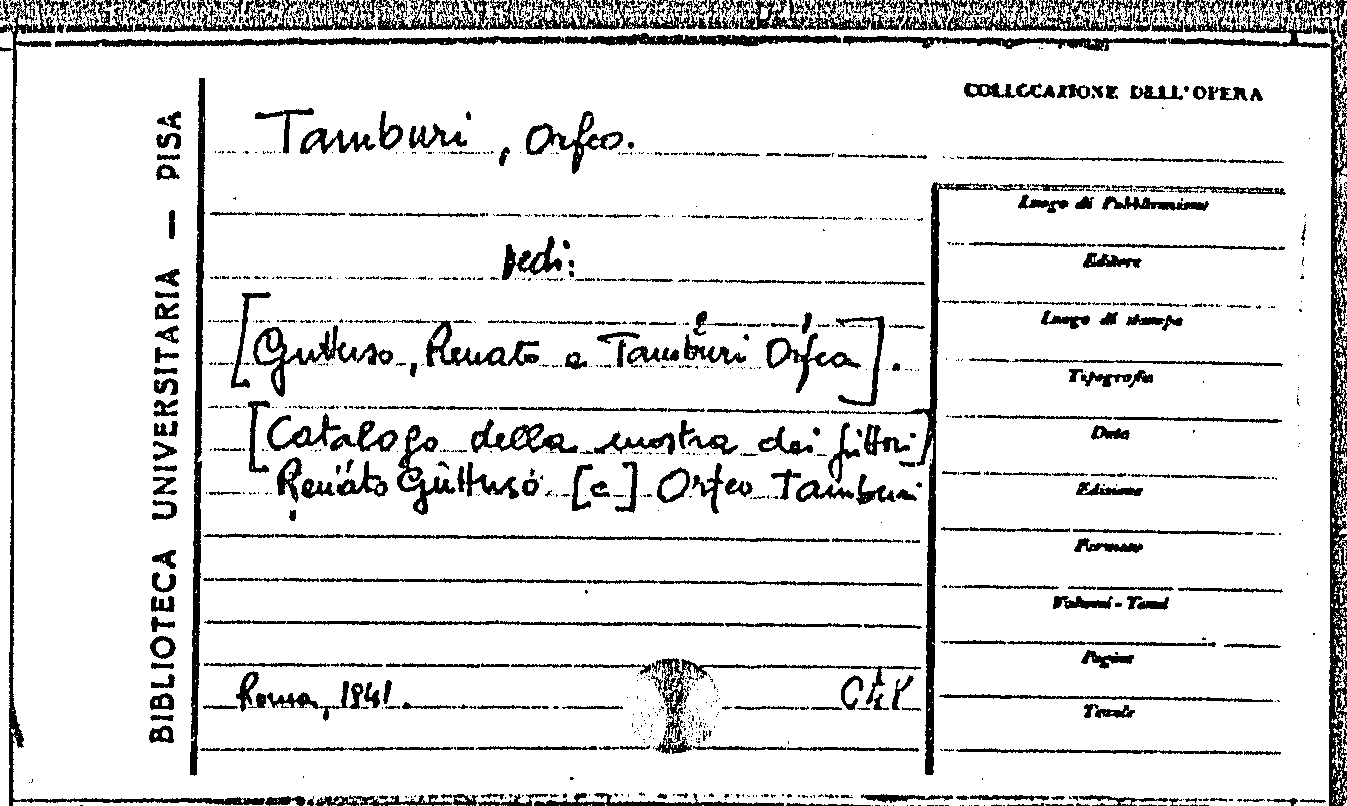 BIBLIOTECA UNIVERSITARIA — PISA
COLLOCAZIONE DELL'OPERA
Tamburi, Orfeo.
vedi:
[Guttuso, Renato e Tamburi Orfeo].
[Catalogo della mostra dei pittori]
Renato Guttuso [e] Orfeo Tamburi
Roma, 1941.
Luogo di Pubblicazione
Editore
Luogo di stampa
Tipografia
Data
Edizione
Formato
Volumi - Tomi
Pagine
Tavole